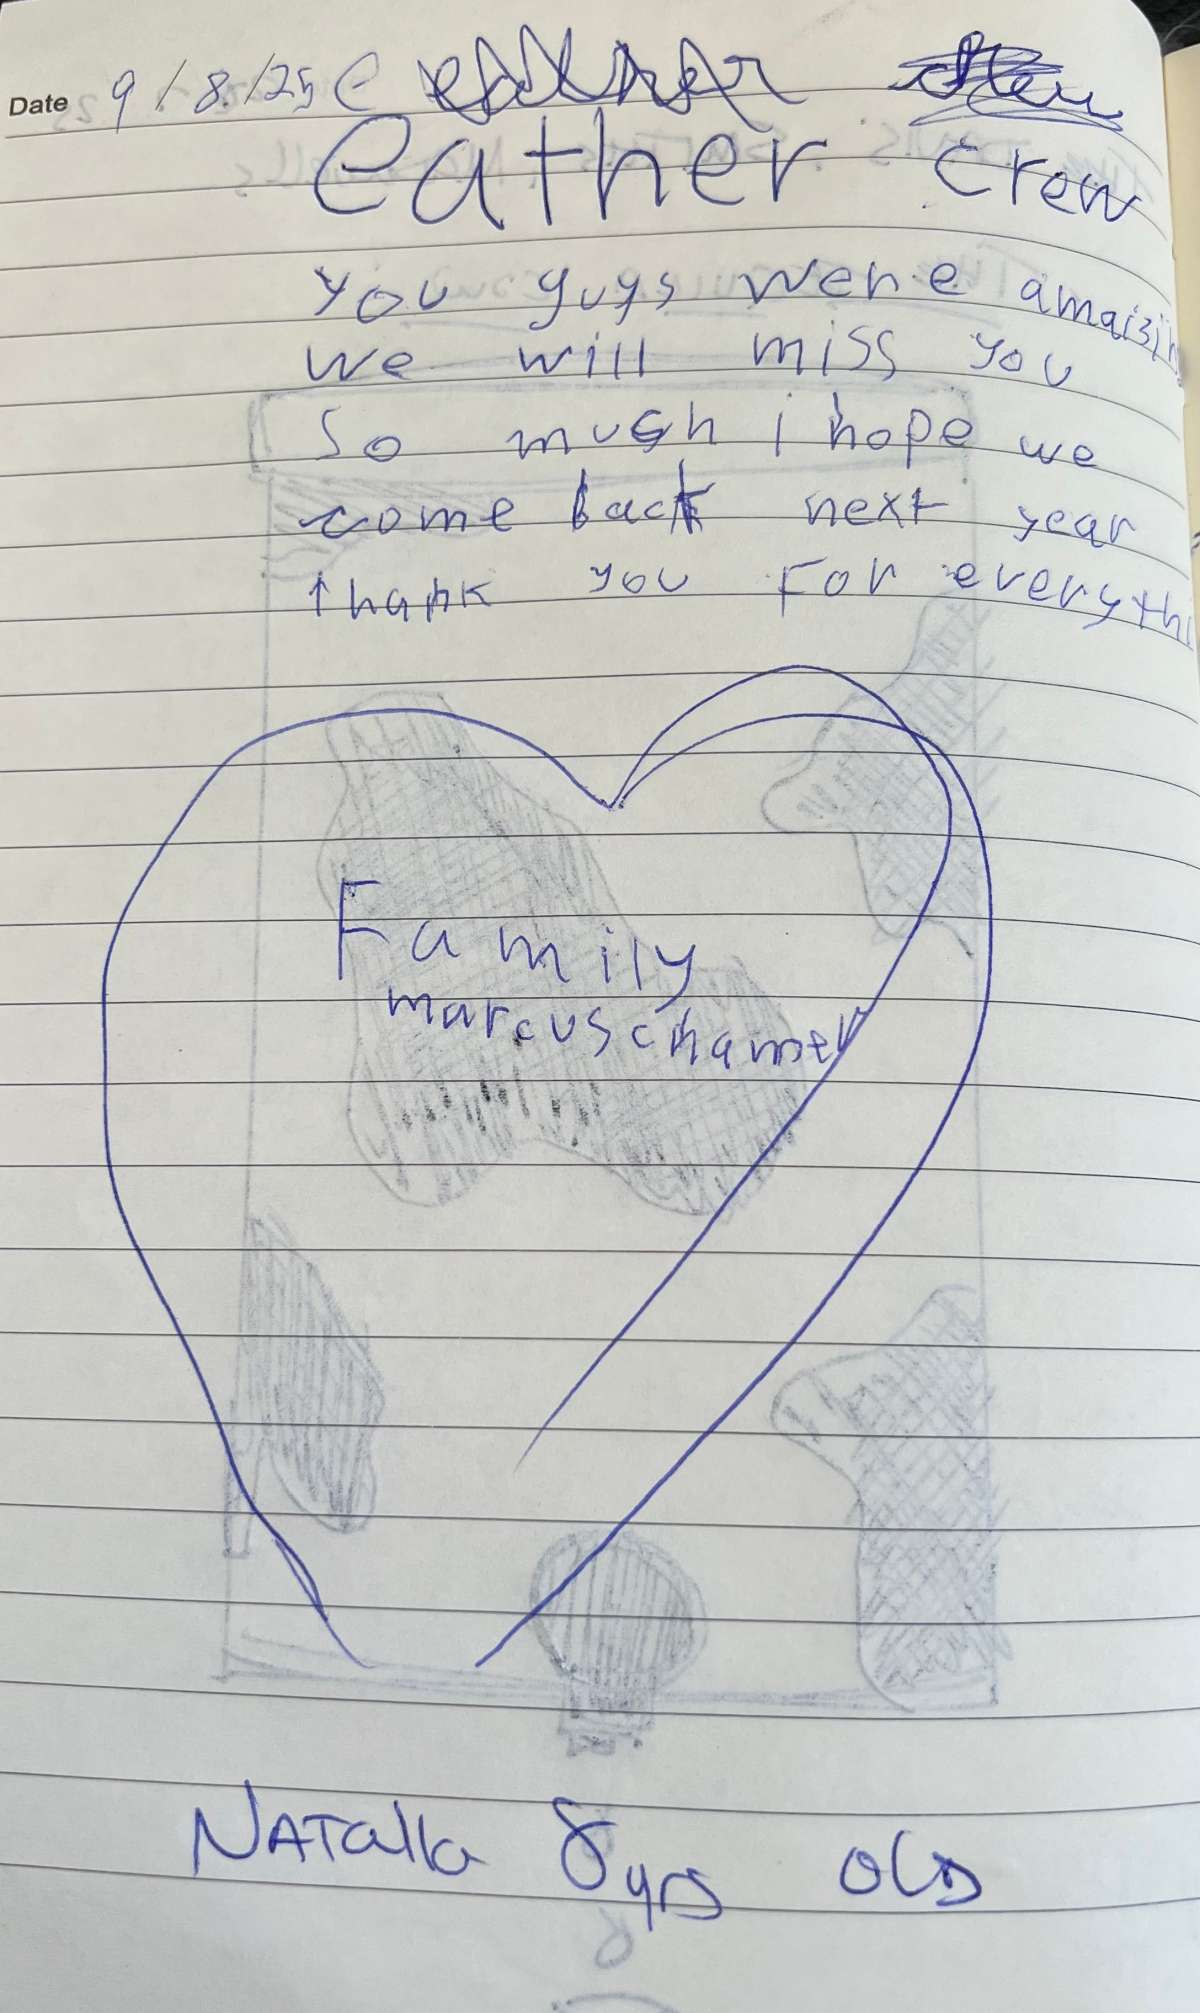 Date 9/8/25
eather crew
you guys were amaizing
we will miss you
so much i hope we
come back next year
thank you For everythi
Family
marcus
Natalia 8yrs old